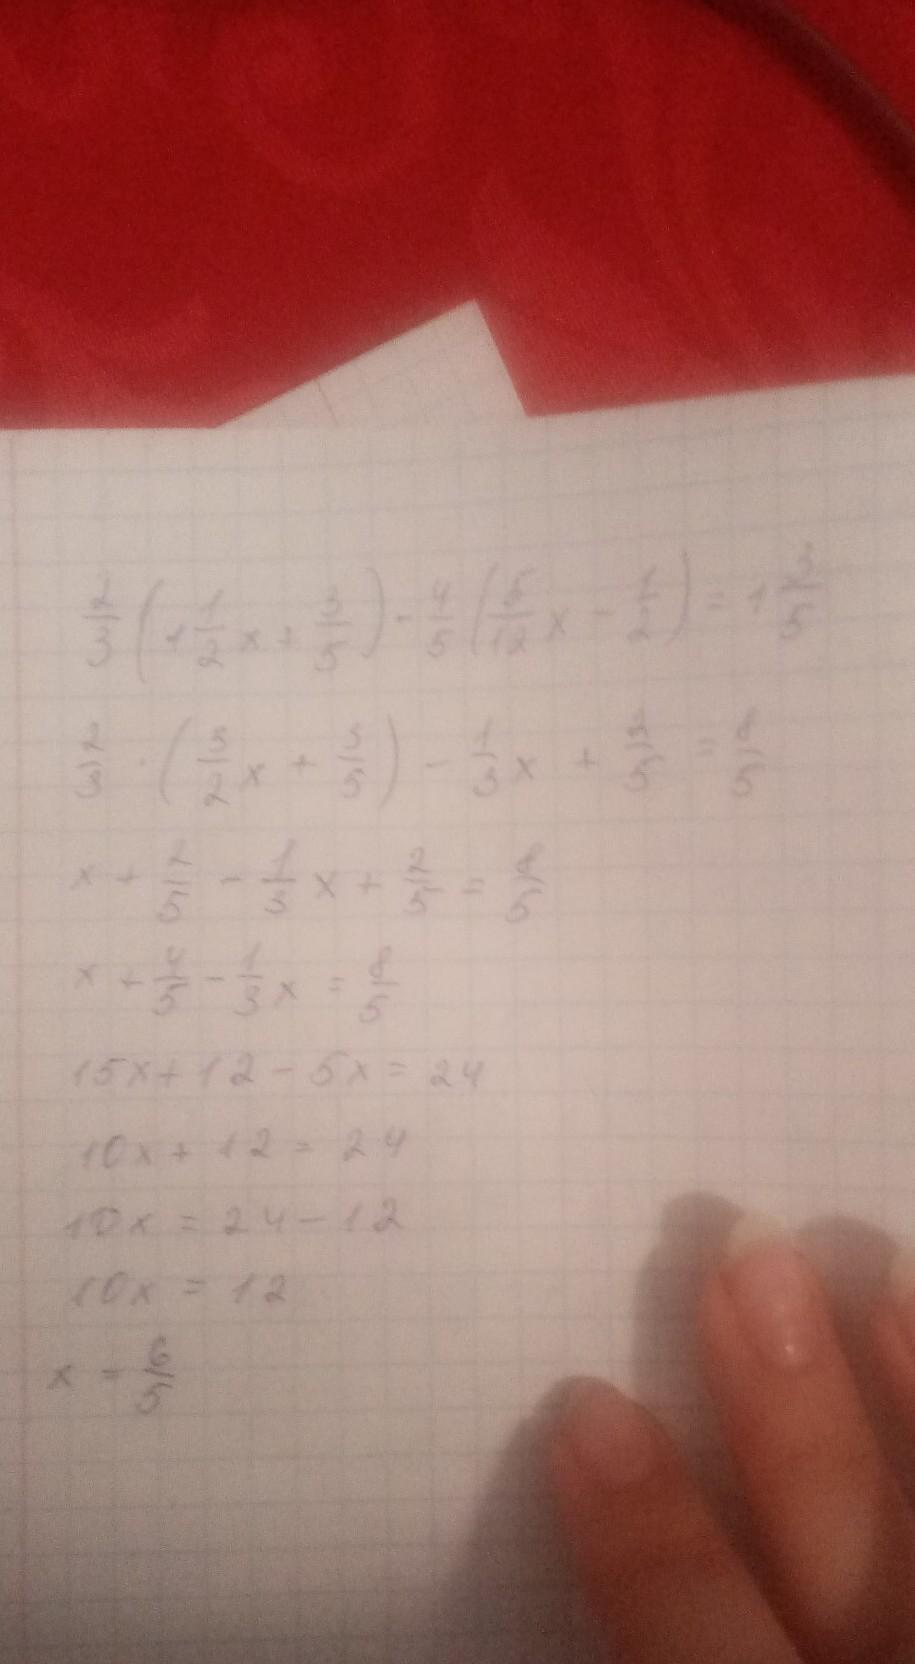 2/3 (1 1/2 x + 3/5) - 4/5 (5/12 x - 1/2) = 1 3/5
2/3 · (3/2 x + 3/5) - 1/3 x + 2/5 = 8/5
x + 2/5 - 1/3 x + 2/5 = 8/5
x + 4/5 - 1/3 x = 8/5
15x + 12 - 5x = 24
10x + 12 = 24
10x = 24 - 12
10x = 12
x = 6/5